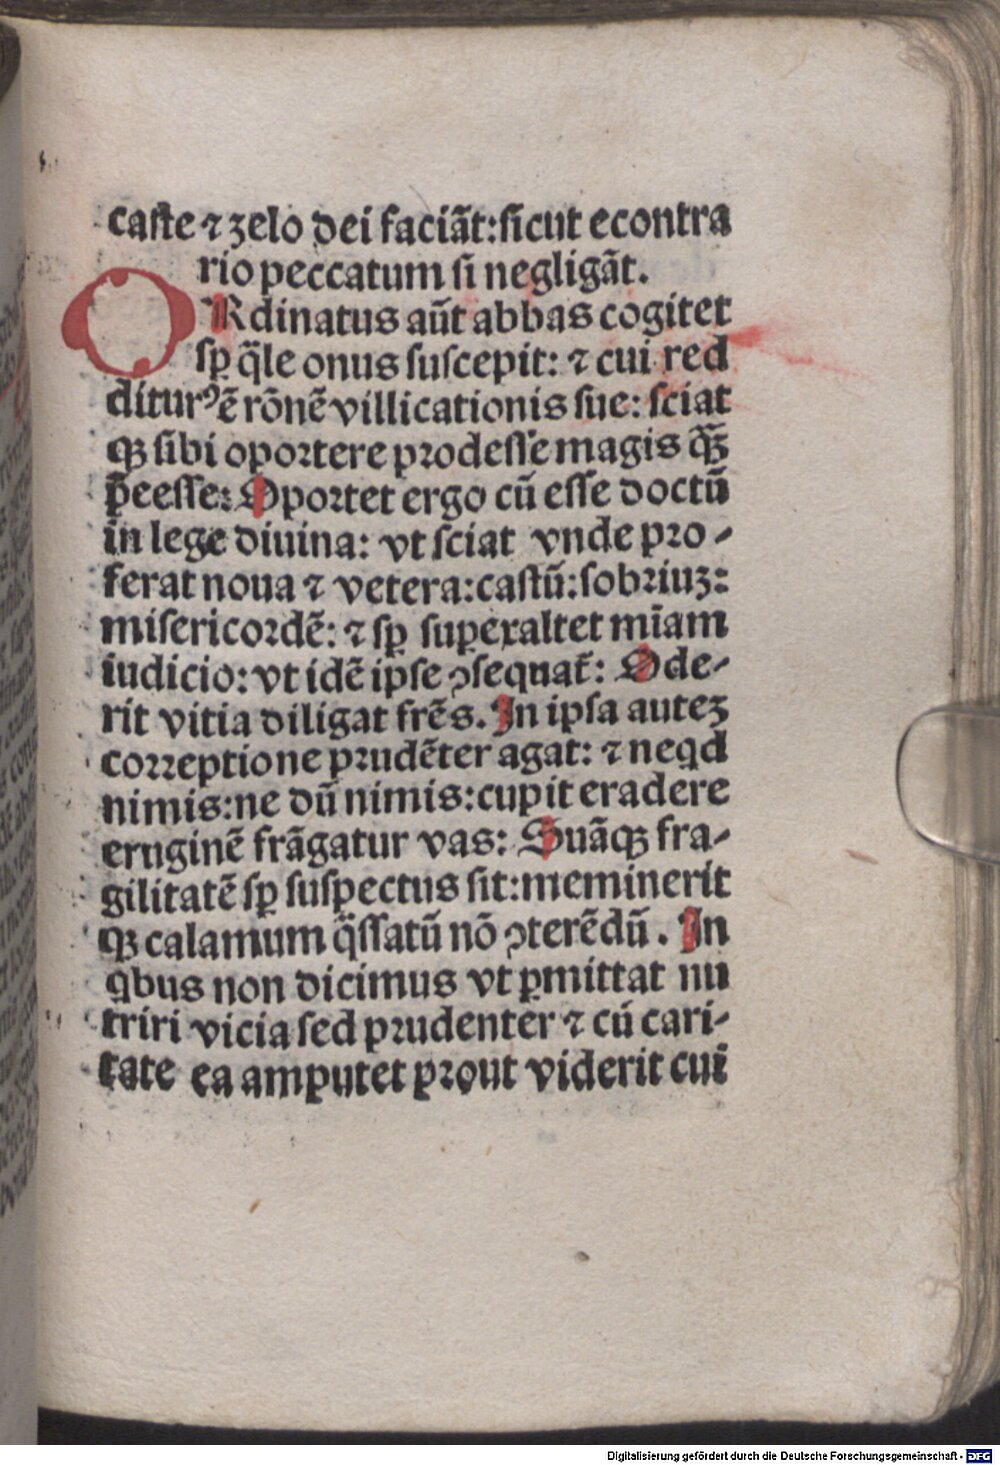 caste ⁊ zelo dei faciāt: sicut econtra
rio peccatum si negligāt.
ORdinatus aūt abbas cogitet
sꝑ q̄le onus suscepit: ⁊ cui red
ditur⁹ ē rōnē villicationis sue: sciat
qꝫ sibi oportere prodesse magis q̄ꝫ
p̄eesse: Oportet ergo cū esse doctū
in lege diuina: vt sciat vnde pro-
ferat noua ⁊ vetera: castū: sobriuꝫ:
misericordē: ⁊ sꝑ suꝑexaltet mīam
iudicio: vt idē ipse ↄsequat̄: Ode-
rit vitia diligat frēs. In ipsa auteꝫ
correptione prudēter agat: ⁊ neqd
nimis: ne dū nimis: cupit eradere
eruginē frāgatur vas: Suāqꝫ fra-
gilitatē sꝑ suspectus sit: meminerit
qꝫ calamum q̄ssatū nō ↄterēdū. In
qbus non dicimus vt ꝑmittat nu
triri vicia sed prudenter ⁊ cū cari-
tate ea amputet prout viderit cuī
Digitalisierung gefördert durch die Deutsche Forschungsgemeinschaft - DFG